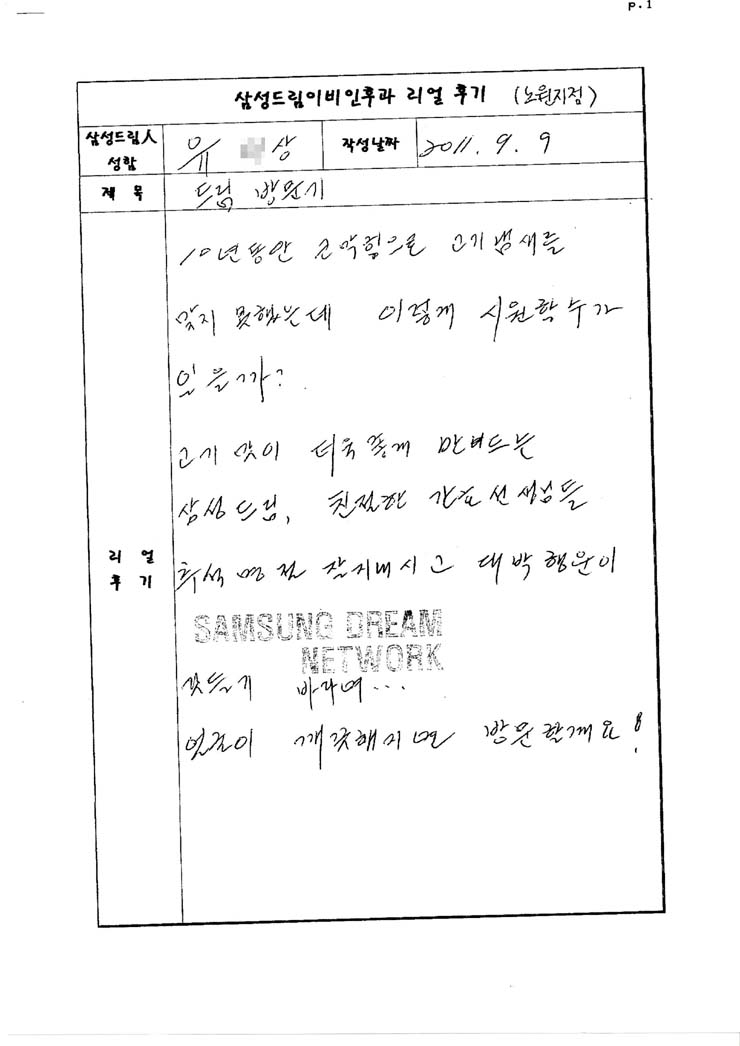 P.1
삼성드림이비인후과 리얼 후기 (노원지점)
삼성드림人 성함
유 상
작성날짜
2011. 9. 9
제 목
드림 방문기
10년동안 코막힘으로 고기냄새를
맡지 못했는데 이렇게 시원할수가
있을까?
고기 맛이 더욱좋게 만드는
삼성드림, 친절한 간호선생님들
추석명절 잘지내시고 대박행운이
SAMSUNG DREAM
NETWORK
깃들기 바라며...
이 깨끗해지면 방문할께요!
리 얼
후 기